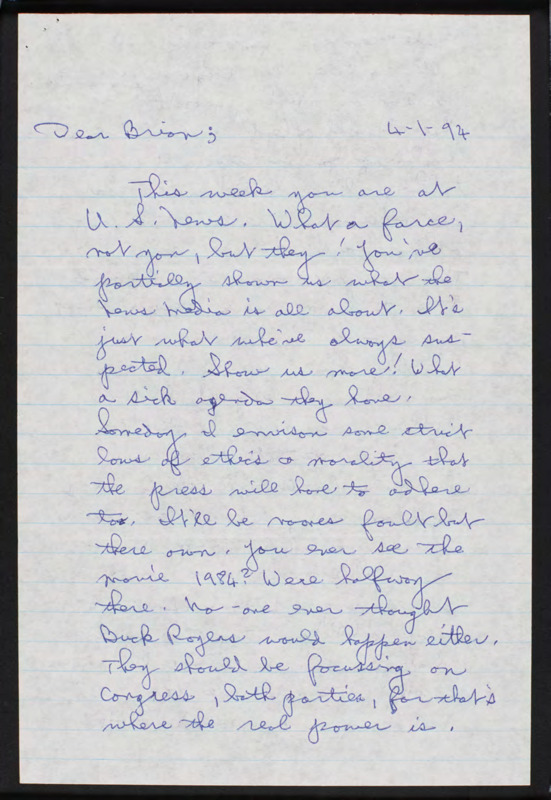 Dear Brian; 4-1-94
This week you are at
U. S. News. What a farce,
not you, but they! You've
partially shown us what the
News Media is all about. It's
just what whe've always sus-
pected. Show us more! What
a sick agenda they have.
Someday I envison some strict
laws of ethics & morality that
the press will have to adhere
too. It'll be noones fault but
there own. You ever see the
movie 1984? Were halfway
there. No-one ever thought
Buck Rogers would happen either.
They should be focussing on
Congress, both parties, for that's
where the real power is.